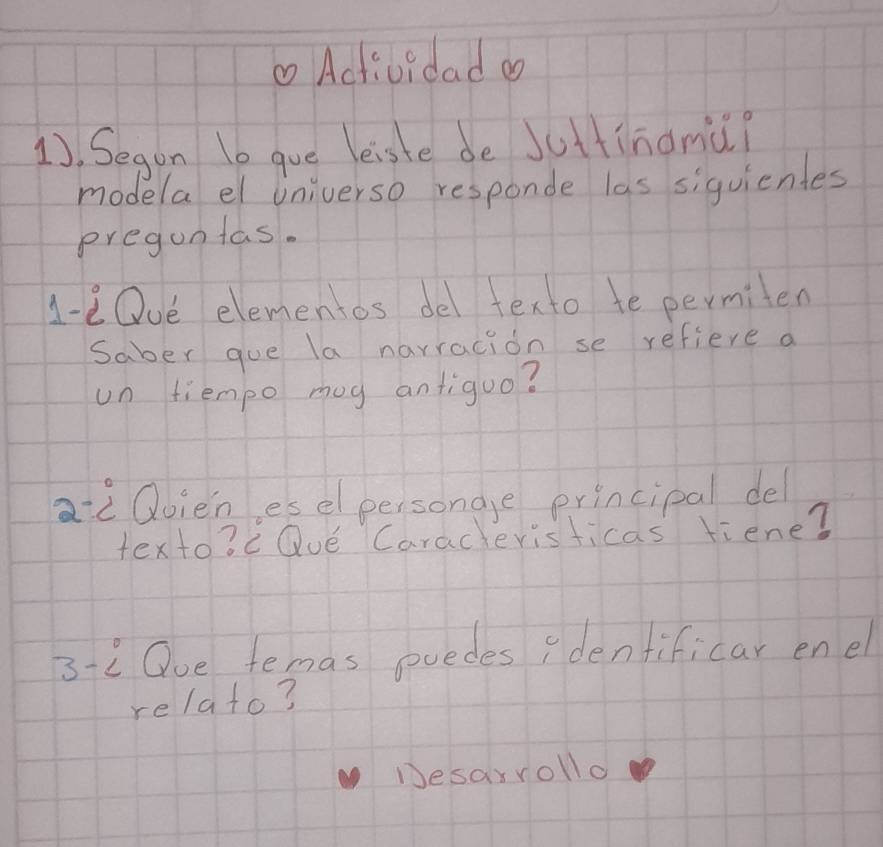 Actividad
1). Segun lo que leiste de Juttiñamüi
modela el universo responde las siguientes
preguntas.
1-¿Qué elementos del texto te permiten
Saber que la narración se refiere a
un tiempo muy antiguo?
2-¿Quién es el personaje principal del
texto?¿Qué Caracteristicas tiene?
3-¿Que temas puedes identificar en el
relato?
Desarrollo